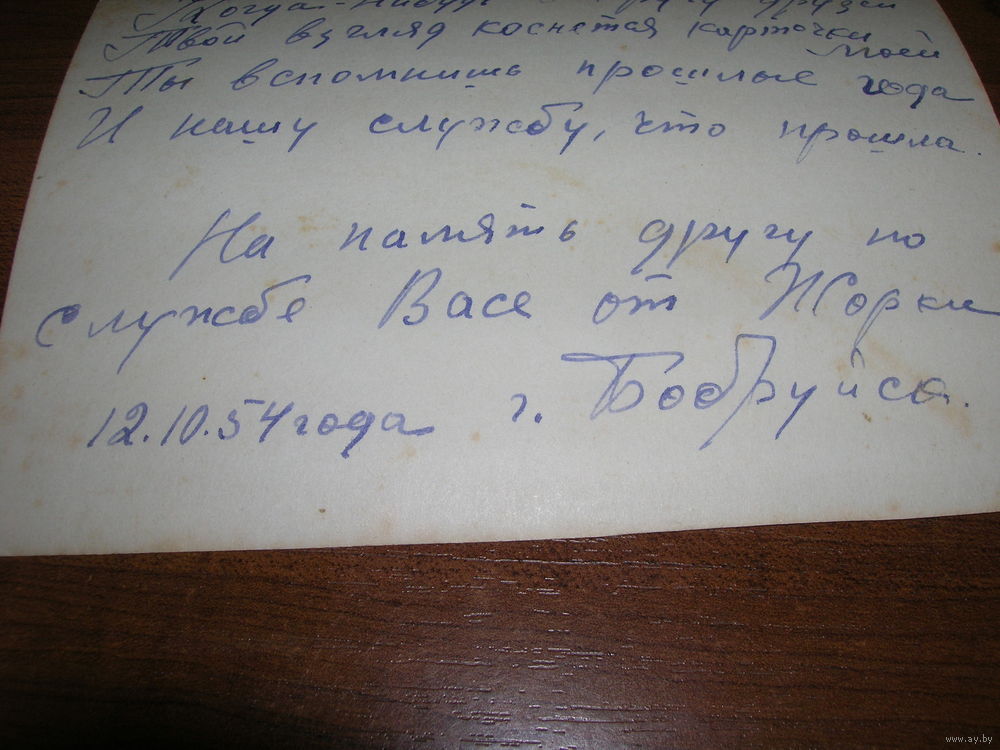 Когда-нибудь в кругу друзей
Твой взгляд коснется карточки моей
Ты вспомнишь прошлые года
И нашу службу, что прошла.
На память другу по
службе Васе от Жорки
12.10.54 года г. Бобруйск.
www.ay.by